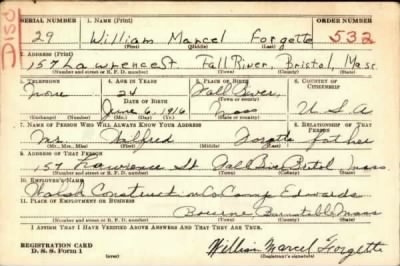 DISD
SERIAL NUMBER 1. NAME (Print)
29 William Marcel Forgette 532
(First) (Middle) (Last)
2. ADDRESS (Print)
157 Lawrence St. Fall River, Bristol, Mass
(Number and street or R. F. D. number) (Town) (County) (State)
3. TELEPHONE 4. AGE IN YEARS 5. PLACE OF BIRTH 6. COUNTRY OF CITIZENSHIP
None 24 Fall River
DATE OF BIRTH (Town or county)
June 6, 1916 Mass U.S.A
(Exchange) (No.) (Mo.) (Day) (Yr.) (State or country)
7. NAME OF PERSON WHO WILL ALWAYS KNOW YOUR ADDRESS 8. RELATIONSHIP OF THAT PERSON
Mr. Wilfred Forgette father
(Mr., Mrs., Miss) (First) (Middle) (Last)
9. ADDRESS OF THAT PERSON
157 Lawrence St Fall River Bristol Mass
(Number and street or R. F. D. number) (Town) (County) (State)
10. EMPLOYER'S NAME
Walsh Construction Co Camp Edwards
11. PLACE OF EMPLOYMENT OR BUSINESS
Bourne Barnstable Mass
(Number and street or R. F. D. number) (Town) (County) (State)
I AFFIRM THAT I HAVE VERIFIED ABOVE ANSWERS AND THAT THEY ARE TRUE.
REGISTRATION CARD
D. S. S. Form 1 (over) William Marcel Forgette
(Registrant's signature)